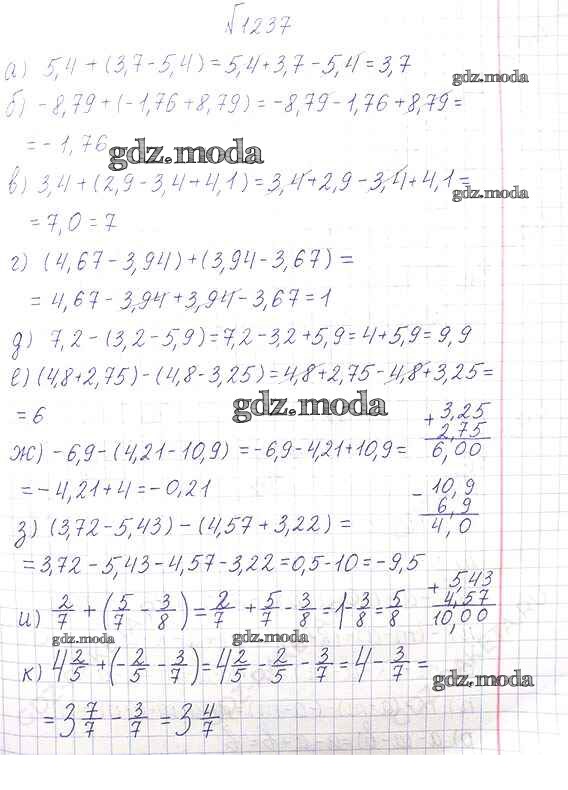 №1237
а) 5,4 + (3,7 - 5,4) = 5,4 + 3,7 - 5,4 = 3,7
gdz.moda
б) -8,79 + (-1,76 + 8,79) = -8,79 - 1,76 + 8,79 =
= -1,76
gdz.moda
в) 3,4 + (2,9 - 3,4 + 4,1) = 3,4 + 2,9 - 3,4 + 4,1 =
gdz.moda
= 7,0 = 7
г) (4,67 - 3,94) + (3,94 - 3,67) =
= 4,67 - 3,94 + 3,94 - 3,67 = 1
д) 7,2 - (3,2 - 5,9) = 7,2 - 3,2 + 5,9 = 4 + 5,9 = 9,9
е) (4,8 + 2,75) - (4,8 - 3,25) = 4,8 + 2,75 - 4,8 + 3,25 =
= 6
gdz.moda
+ 3,25
2,75
6,00
ж) -6,9 - (4,21 - 10,9) = -6,9 - 4,21 + 10,9 =
= -4,21 + 4 = -0,21
- 10,9
6,9
4,0
з) (3,72 - 5,43) - (4,57 + 3,22) =
= 3,72 - 5,43 - 4,57 - 3,22 = 0,5 - 10 = -9,5
+ 5,43
4,57
10,00
и) 2/7 + (5/7 - 3/8) = 2/7 + 5/7 - 3/8 = 1 - 3/8 = 5/8
gdz.moda
gdz.moda
к) 4 2/5 + (-2/5 - 3/7) = 4 2/5 - 2/5 - 3/7 = 4 - 3/7 =
gdz.moda
= 3 7/7 - 3/7 = 3 4/7